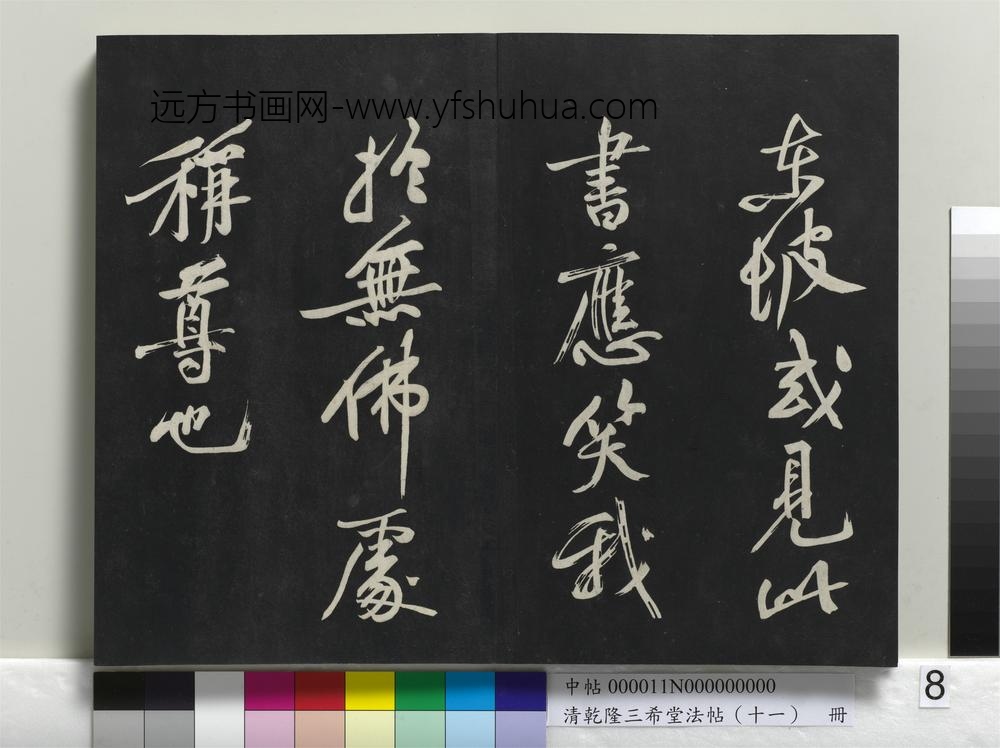 远方书画网-www.yfshuhua.com
東坡或見此
書應笑我
於無佛處
稱尊也
中帖 000011N000000000
清乾隆三希堂法帖（十一） 冊
8